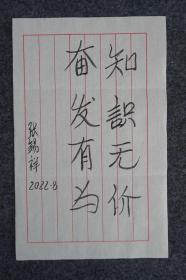 知識无价
奋发有为
张锡祥
2022-8